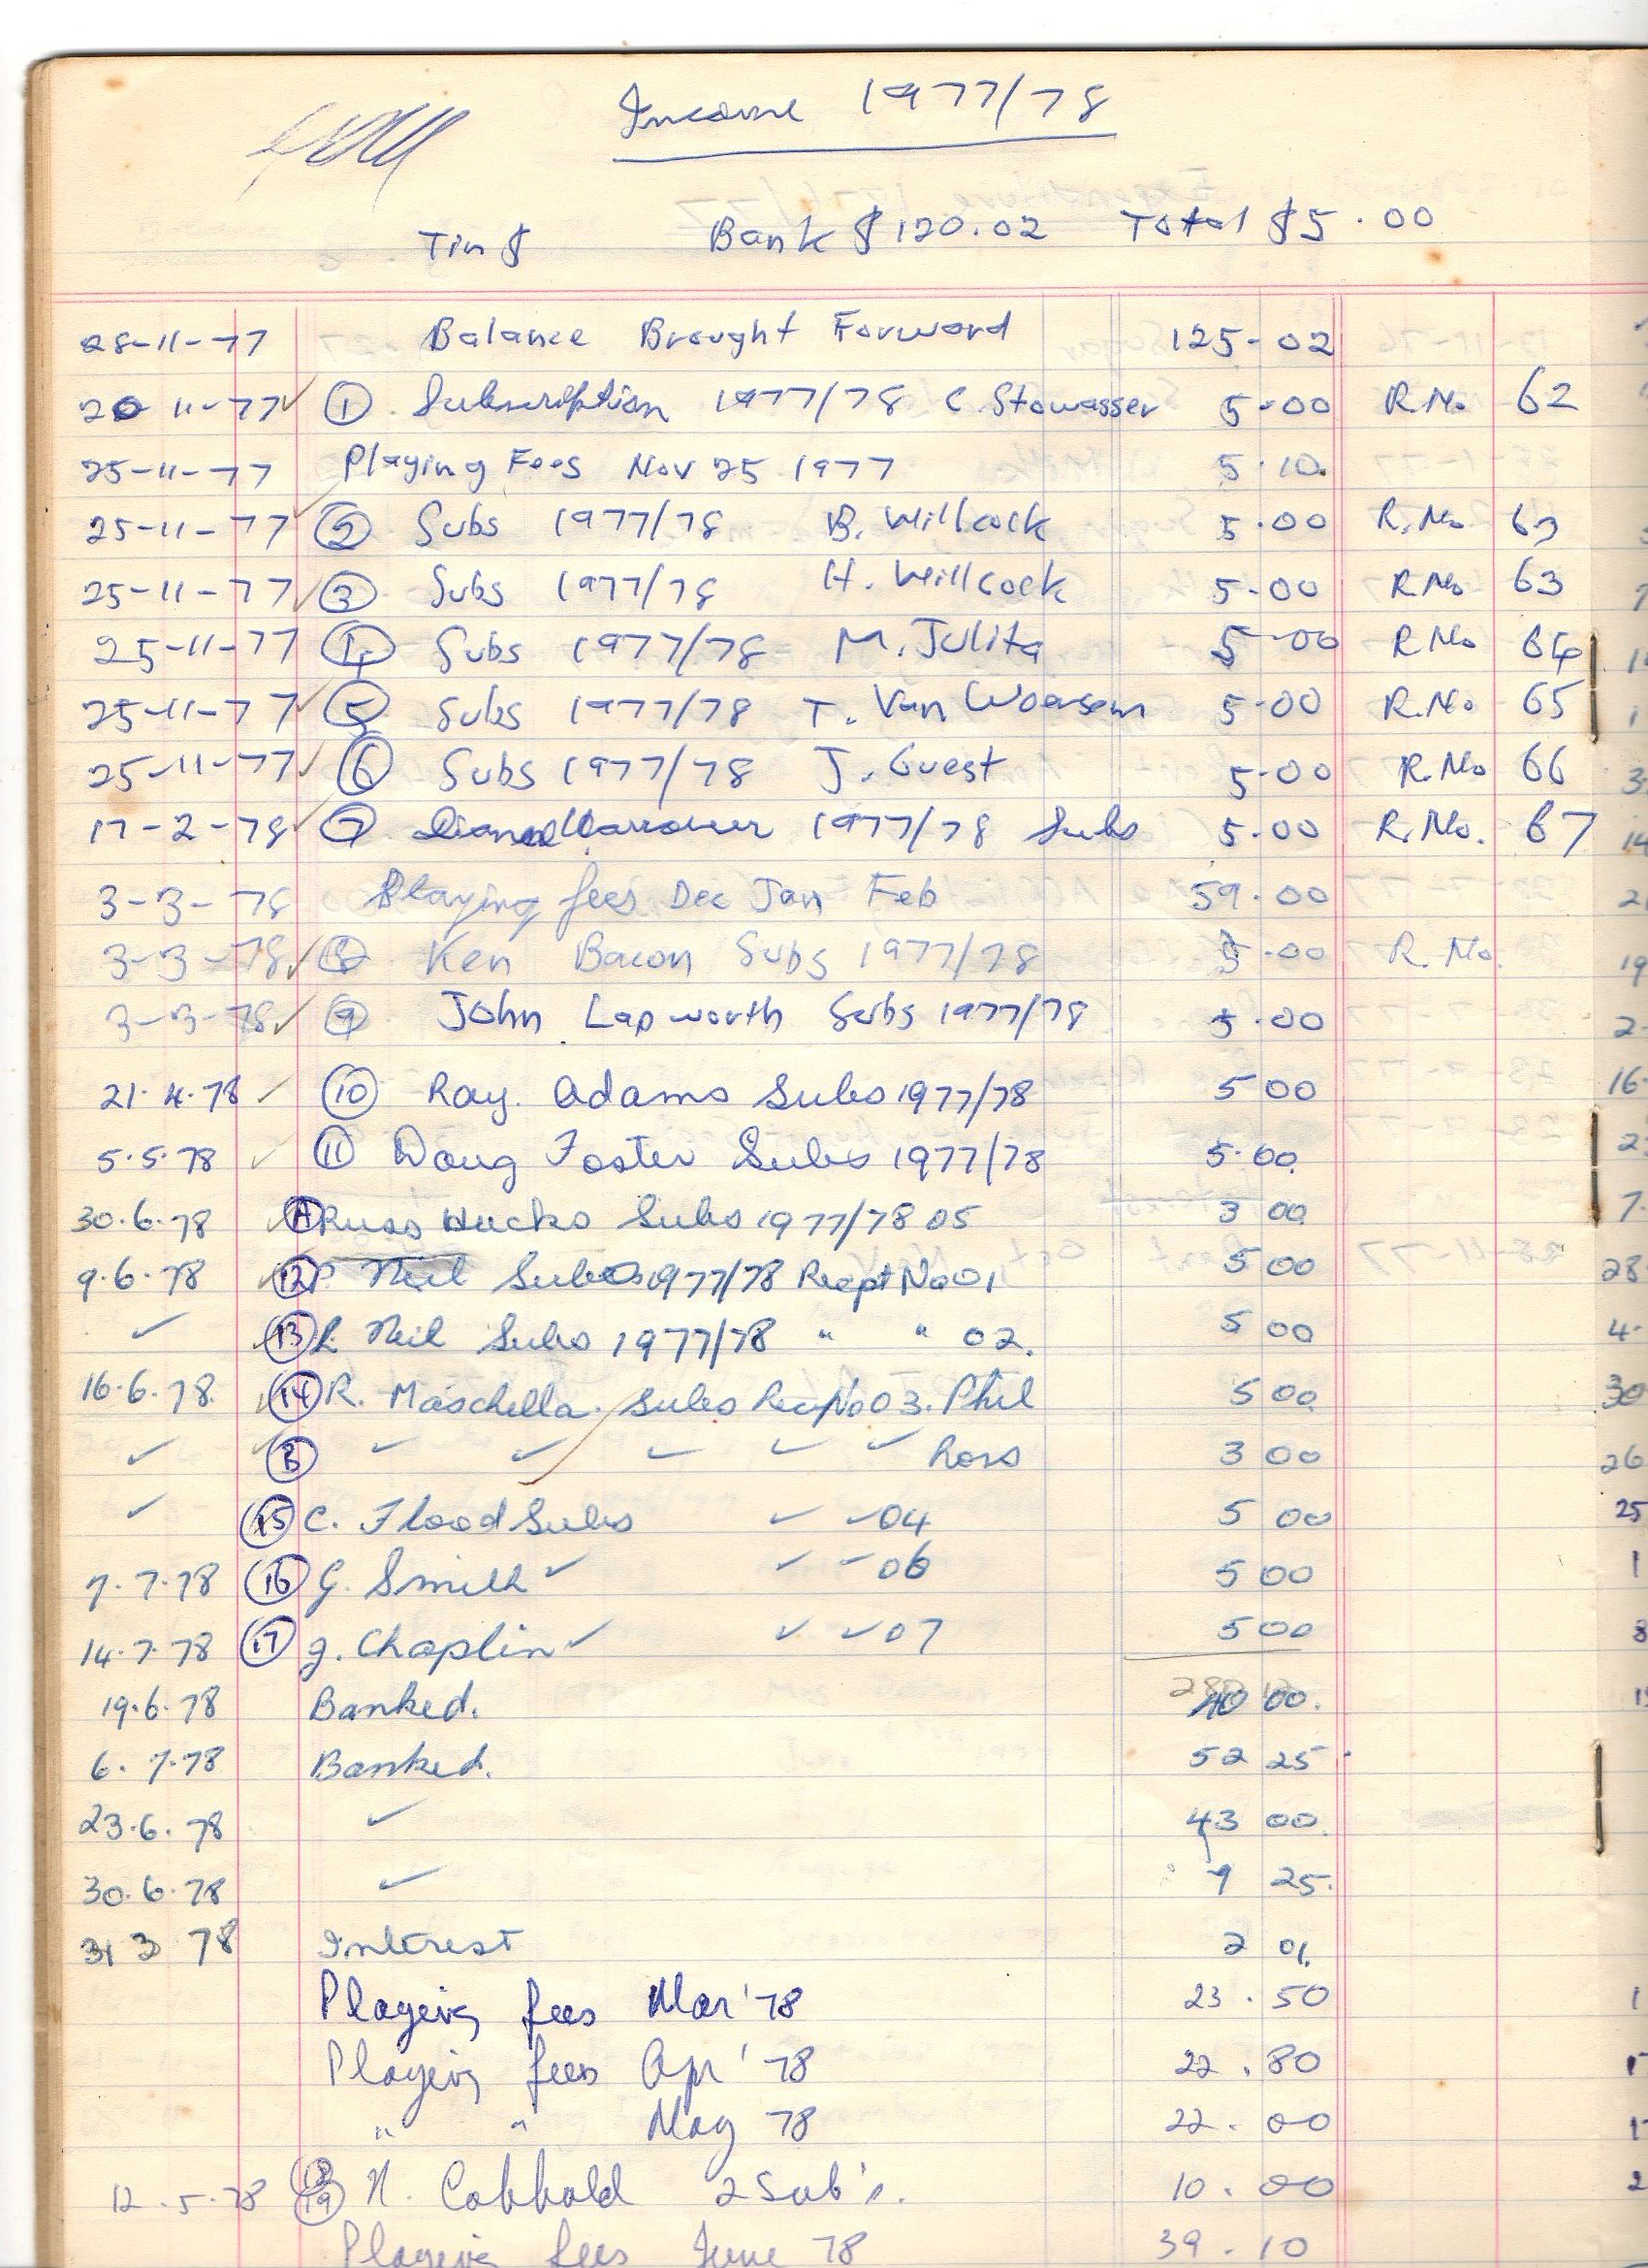 Income 1977/78
Tin $ Bank $120.02 Total $5.00
28-11-77 Balance Brought Forward 125-02
20 11-77 ✓ ① Subscription 1977/78 C. Stowasser 5-00 R.No. 62
25-11-77 Playing Fees Nov 25 1977 5.10.
25-11-77 ✓ ② Subs 1977/78 B. Willcock 5.00 R.No 63
25-11-77 ✓ ③ Subs 1977/78 H. Willcock 5.00 R No 63
25-11-77 ④ Subs 1977/78 M. Julita 5-00 R No 64
25-11-77 ✓ ⑤ Subs 1977/78 T. Van Woersem 5-00 R.No. 65
25-11-77 ✓ ⑥ Subs 1977/78 J. Guest 5.00 R.No 66
17-2-78 ✓ ⑦ 1977/78 Subs 5.00 R.No. 67
3-3-78 Playing fees Dec Jan Feb 59.00
3-3-78 ✓ ⑧ Ken Bacon Subs 1977/78 5.00 R.No.
3-3-78 ✓ ⑨ John Lapworth Subs 1977/78 5.00
21.4.78 ✓ ⑩ Ray. Adams Subs 1977/78 5 00
5.5.78 ✓ ⑪ Doug Foster Subs 1977/78 5.00.
30.6.78 ✓ Ⓐ Russ Hucks Subs 1977/78 05 3 00
9.6.78 ✓ ⑫ P. Neil Subs 1977/78 Recpt No 01 5 00
✓ ✓ ⑬ R Neil Subs 1977/78 " " 02. 5 00
16.6.78. ✓ ⑭ R. Maschella. Subs Recp No 03. Phil 5 00.
✓ ✓ Ⓑ ✓ ✓ ✓ ✓ ✓ Ross 3 00
✓ ⑮ C. Flood Subs ✓ ✓ 04 5 00
7.7.78 ⑯ G. Smith ✓ ✓ ✓ 06 5 00
14.7.78 ⑰ J. Chaplin ✓ ✓ ✓ 07 5 00
19.6.78 Banked. 40 00.
6.7.78 Banked. 52 25.
23.6.78 ✓ 43 00.
30.6.78 ✓ 9 25.
31 3 78 Interest 2 01.
Playing fees Mar '78 23.50
Playing fees Apr '78 22.80
" " May 78 22.00
12.5.78 ⑱ ⑲ N. Cobbold 2 Sub's. 10.00
Playing fees June 78 39.10